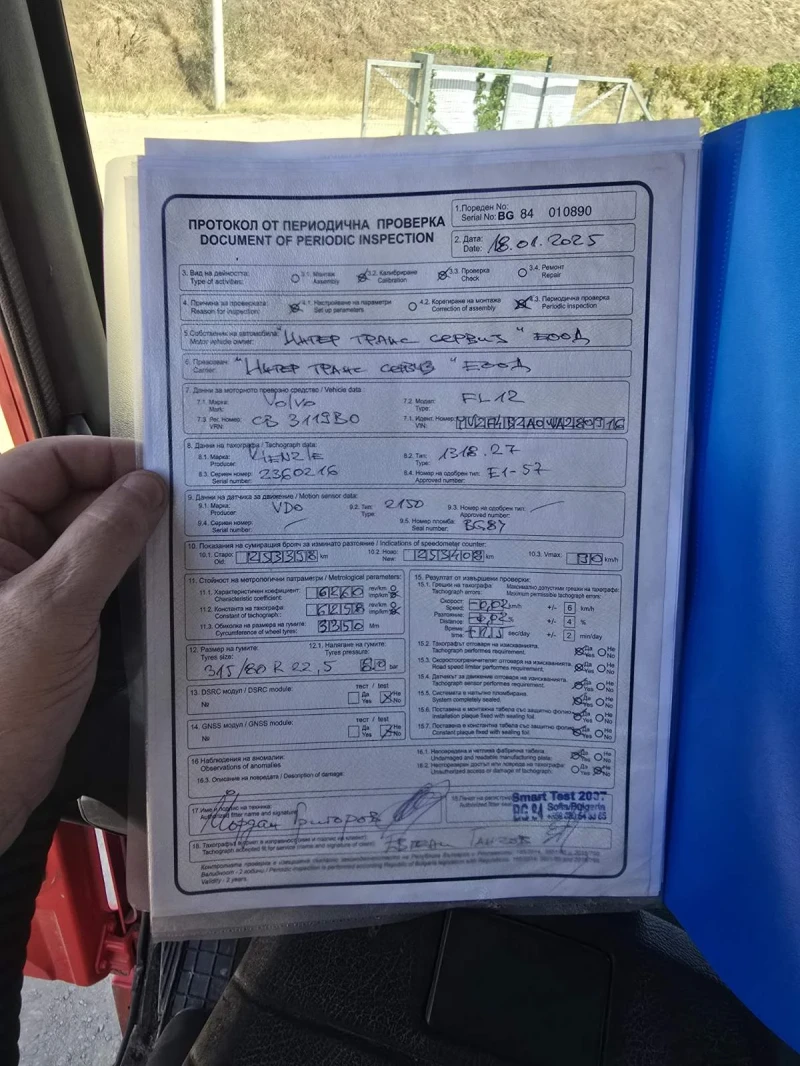 ПРОТОКОЛ ОТ ПЕРИОДИЧНА ПРОВЕРКА
DOCUMENT OF PERIODIC INSPECTION
1. Пореден No:
Serial No: BG 84 010890
2. Дата:
Date: 18.01.2025
3. Вид на дейността:
Type of activities:
3.1. Монтаж
Assembly
3.2. Калибриране
Calibration
3.3. Проверка
Check
3.4. Ремонт
Repair
4. Причина за проверката:
Reason for inspection:
4.1. Настройване на параметри
Set up parameters
4.2. Корегиране на монтажа
Correction of assembly
4.3. Периодична проверка
Periodic inspection
5. Собственик на автомобила:
Motor vehicle owner:
"Интер Транс Сервиз" ЕООД
6. Превозвач:
Carrier:
"Интер Транс Сервиз" ЕООД
7. Данни за моторното превозно средство / Vehicle data:
7.1. Марка:
Mark:
Volvo
7.2. Модел:
Type:
FL12
7.3. Рег. номер:
VRN:
СВ 3119ВО
7.1. Идент. Номер:
VIN:
8. Данни на тахографа / Tachograph data:
8.1. Марка:
Producer
KIENZLE
8.2. Тип:
Type:
1318.27
8.3. Сериен номер:
Serial number:
2360216
8.4. Номер на одобрен тип:
Approved number:
E1-57
9. Данни на датчика за движение / Motion sensor data:
9.1. Марка:
Producer
VDO
9.2. Тип:
Type
2150
9.3. Номер на одобрен тип:
Approved number:
9.4. Сериен номер:
Serial number:
9.5. Номер пломба:
Seal number:
BG84
10. Показания на сумиращия брояч за изминато разстояние / Indications of speedometer counter:
10.1. Старо:
Old:
km
10.2. Ново:
New:
km
10.3. Vmax:
km/h
11. Стойност на метрологични параметри / Metrological parameters:
11.1. Характеристичен коефициент:
Characteristic coefficient:
rev/km
imp/km
11.2. Константа на тахографа:
Constant of tachograph:
rev/km
imp/km
11.3. Обиколка на размера на гумите:
Cyrcumference of wheel tyres:
Mm
12. Размер на гумите:
Tyres size:
315/80 R 22,5
12.1. Налягане на гумите:
Tyres pressure:
bar
13. DSRC модул / DSRC module
№
тест / test
Да Yes
Не No
14. GNSS модул / GNSS module:
№
тест / test
Да Yes
Не No
15. Резултат от извършени проверки:
15.1. Грешки на тахографа
Tachograph errors:
Максимално допустими грешки на тахографа:
Maximum permissible tachograph errors:
Скорост:
Speed:
km/h
+/- 6 km/h
Разстояние:
Distance:
+/- 4 %
Време:
time
sec/day
+/- 2 min/day
15.2. Тахографът отговаря на изискванията.
Tachograph performs requirement.
Да Yes
Не No
15.3. Скоростоограничителят отговаря на изискванията.
Road speed limiter performes requirement.
Да Yes
Не No
15.4. Датчикът за движение отговаря на изискванията.
Tachograph sensor performes requirement.
Да Yes
Не No
15.5. Системата е напълно пломбирана.
System completely sealed.
Да Yes
Не No
Installation plaque fixed with sealing foil.
Да Yes
Не No
Constant plaque fixed with sealing foil.
Да Yes
Не No
16 Наблюдения на аномалии:
Observations of anomalies
16.1. Неповредена и четлива фабрична табела.
Undamaged and readable manufacturing plate:
Да Yes
Не No
Unauthorized access or damage of tachograph:
Да Yes
Не No
16.3. Описание на повредата / Description of damage:
17 Име и подпис на техника:
Authorized fitter name and signature
Йордан Григоров
Smart Test 2007
BG 84 Sofia/Bulgaria
Валидност - 2 години
Validity - 2 years.